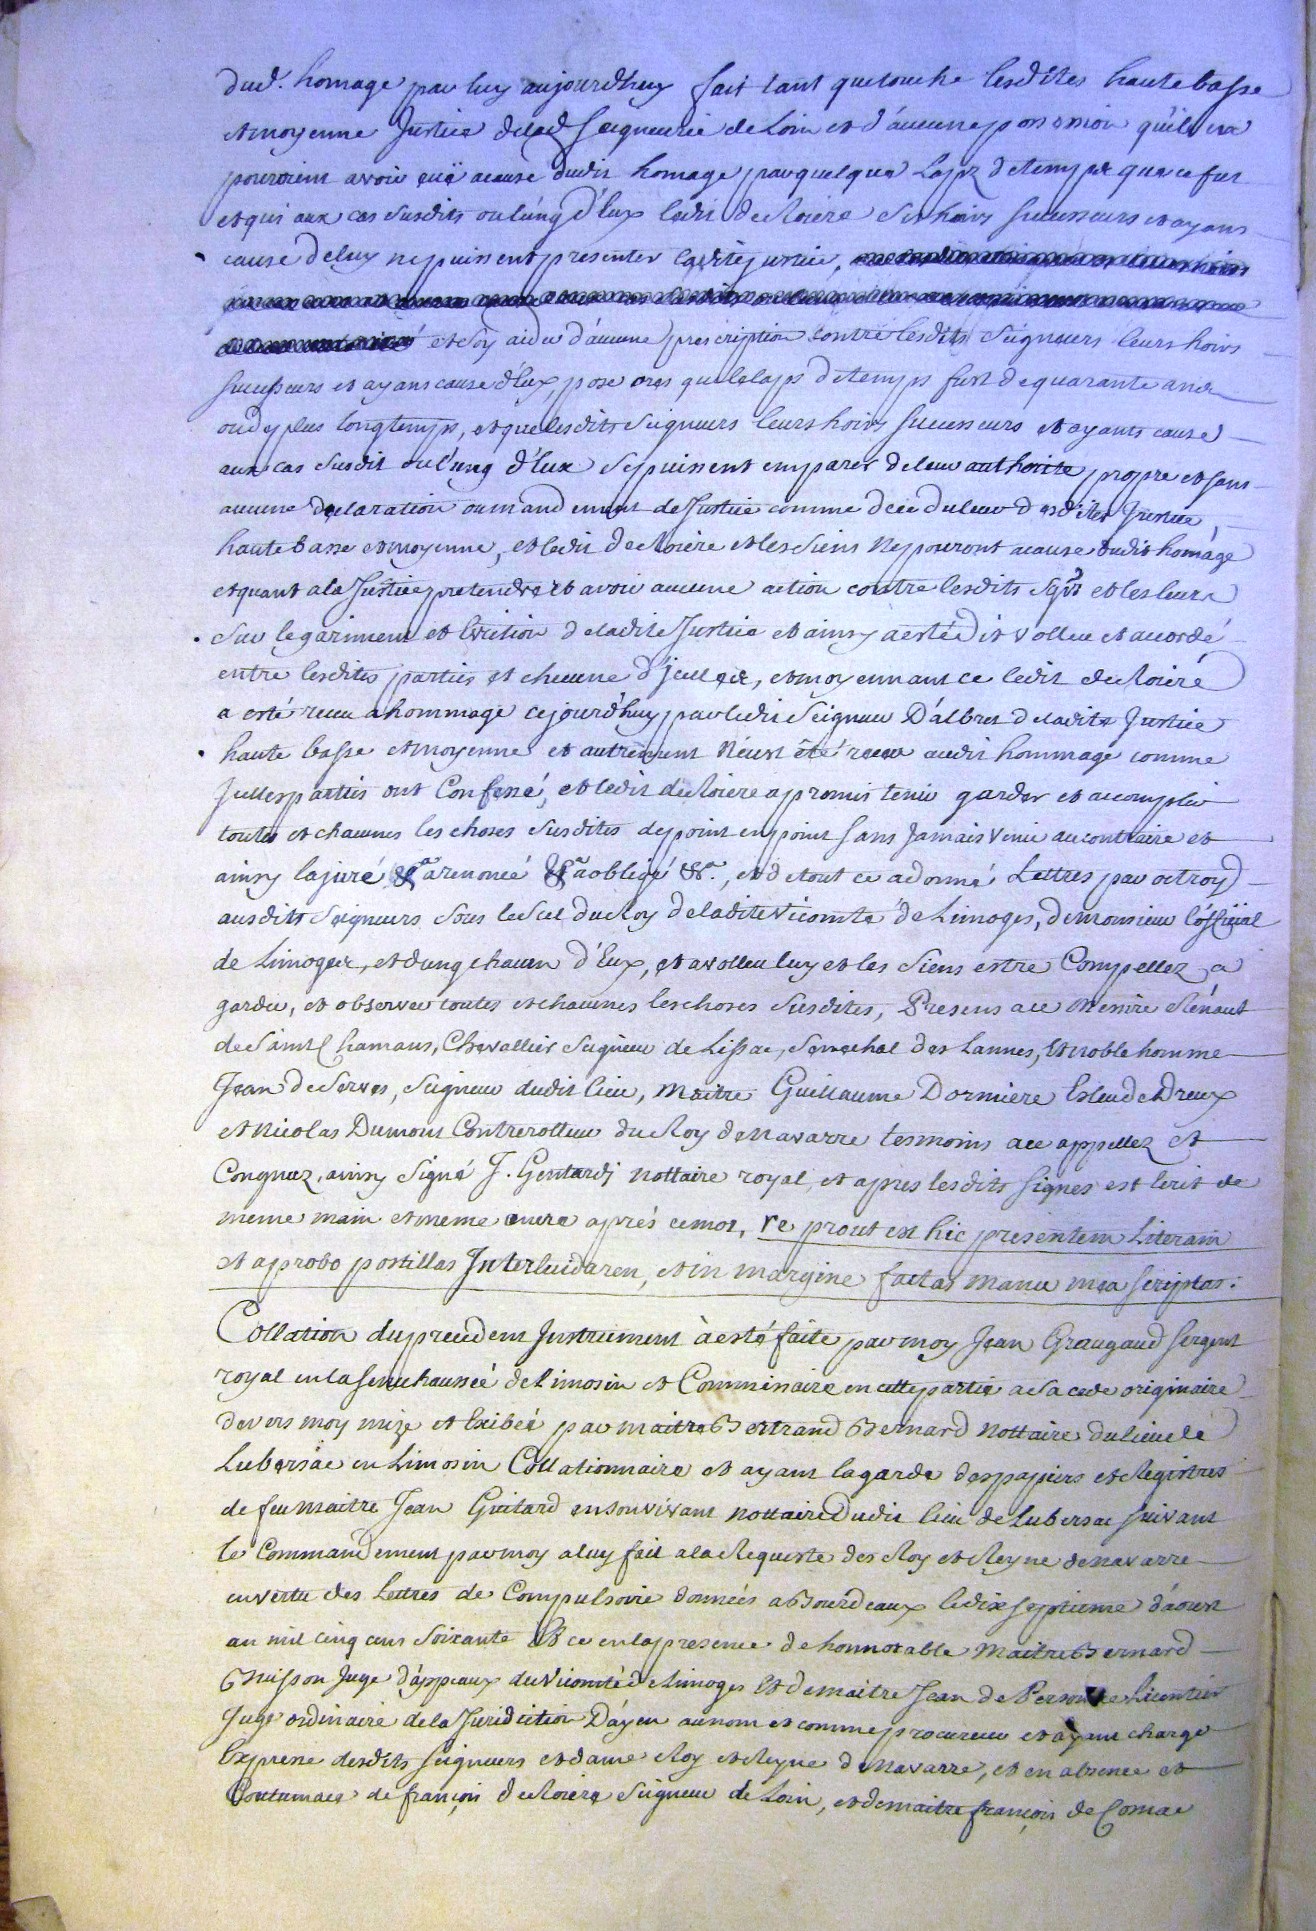 dud. homage par luy aujourdhuy fait tant que touche lesdites haute basse
et moyenne Justice delad. seigneurie de Loin et d'aucune possession qu'ils en
pourroient avoir eüe acause dudit homage par quelque Lapz de temps que ce fut
et qui aux cas susdits ou l'ung d'Eux ledit de Roiere ses hoirs successeurs et ayans
cause de luy ne puissent presenter ladite justice,
et soy aider d'aucune prescription contre lesdits Seigneurs leurs hoirs
successeurs et ayans cause d'Eux, pose ores que le laps de temps fust de quarante ans
ou de plus longtemps, et que lesdits Seigneurs leurs hoirs successeurs et ayants cause
aux cas susdit ou l'ung d'Eux se puissent emparer de leur authorité propre et sans
aucune declaration ou mandement de Justice comme deie du leur desdites Justice,
haute basse et moyenne, et ledit de Roiere et les Siens ne pouront acause dudit homage
et quant a la Justice pretendre et avoir aucune action contre lesdits Sgrs et les leurs
sur le gariment et Eviction de ladite Justice et ainsy a esté dit vollu et accordé
entre lesdites parties et chacune d'jcelles, et moyennant ce ledit de Roieré
a esté receu a hommage cejourd'huy par ledit Seigneur D'albret deladite Justice
haute basse et moyenne et autrement N'eust êté receu audit hommage comme
Jcelles parties ont Confessé, et ledit de Roiere a promis tenir garder et accomplir
toutes et chacunes les choses susdites de point en point sans Jamais venir au contraire et
ainsy la juré &a a renoncé &a a obligé &a., et de tout ce a donné Lettres par octroy
ausdits Seigneurs sous le Scel du Roy deladite Vicomté de Limoges, de Monsieur l'official
de Limoges, et d'ung chacun d'Eux, et a vollu luy et les Siens estre Compellez a
garder, et observer toutes et chacunes les choses Susdites, Presens a ce Messire Renaut
de Saint Chamans, Chevallier Seigneur de Lissac, Senechal des Lannes, et noble homme
Jean de Serves, Seigneur dudit lieu, Maitre Guillaume Dormiere Esleu de Dreux
et Nicolas Dumont Contrerolleur du Roy de Navarre tesmoins a ce appellez et
Congnuz, ainsy Signé J. Gentardj nottaire royal, et apres lesdits signes est Ecrit de
meme main et meme encre aprés ce mot, re prout est hic presentem Literam
et aprobo postillas Interluidaren, et in margine factas manu mea scriptas.
Collation du precedent Instrument à esté faite par moy Jean Graugaud Sergent
royal en la senechaussée de Limosin et Commissaire en cette partie a sa cede originaire
devers moy mize et Exibée par maitre Bertrand Bernard nottaire du lieu de
Lubersac en Limosin Collationnaire et ayant la garde des papiers et Registres
de feu maitre Jean Guitard en son vivant nottaire Dudit lieu de Lubersac suivant
le Commandement par moy a luy fait a la Requeste des Roy et Reyne de Navarre
en vertu des Lettres de Compulsoire données a Bourdeaux le dix septieme d'aoust
an mil cinq cens soixante Et ce en la presence de honnorable Maitre Bernard
Buisson Juge d'appeaux du Vicomté de Limoges et de maitre Jean de Licentier
Juge ordinaire de la Juridiction D'ayen au nom et comme procureur et ayant charge
Expresse desdits Seigneurs et dame Roy et Reyne de Navarre, et en absence et
Contumace de françois de Roiere Seigneur de Loin, et de maitre françois de Comac